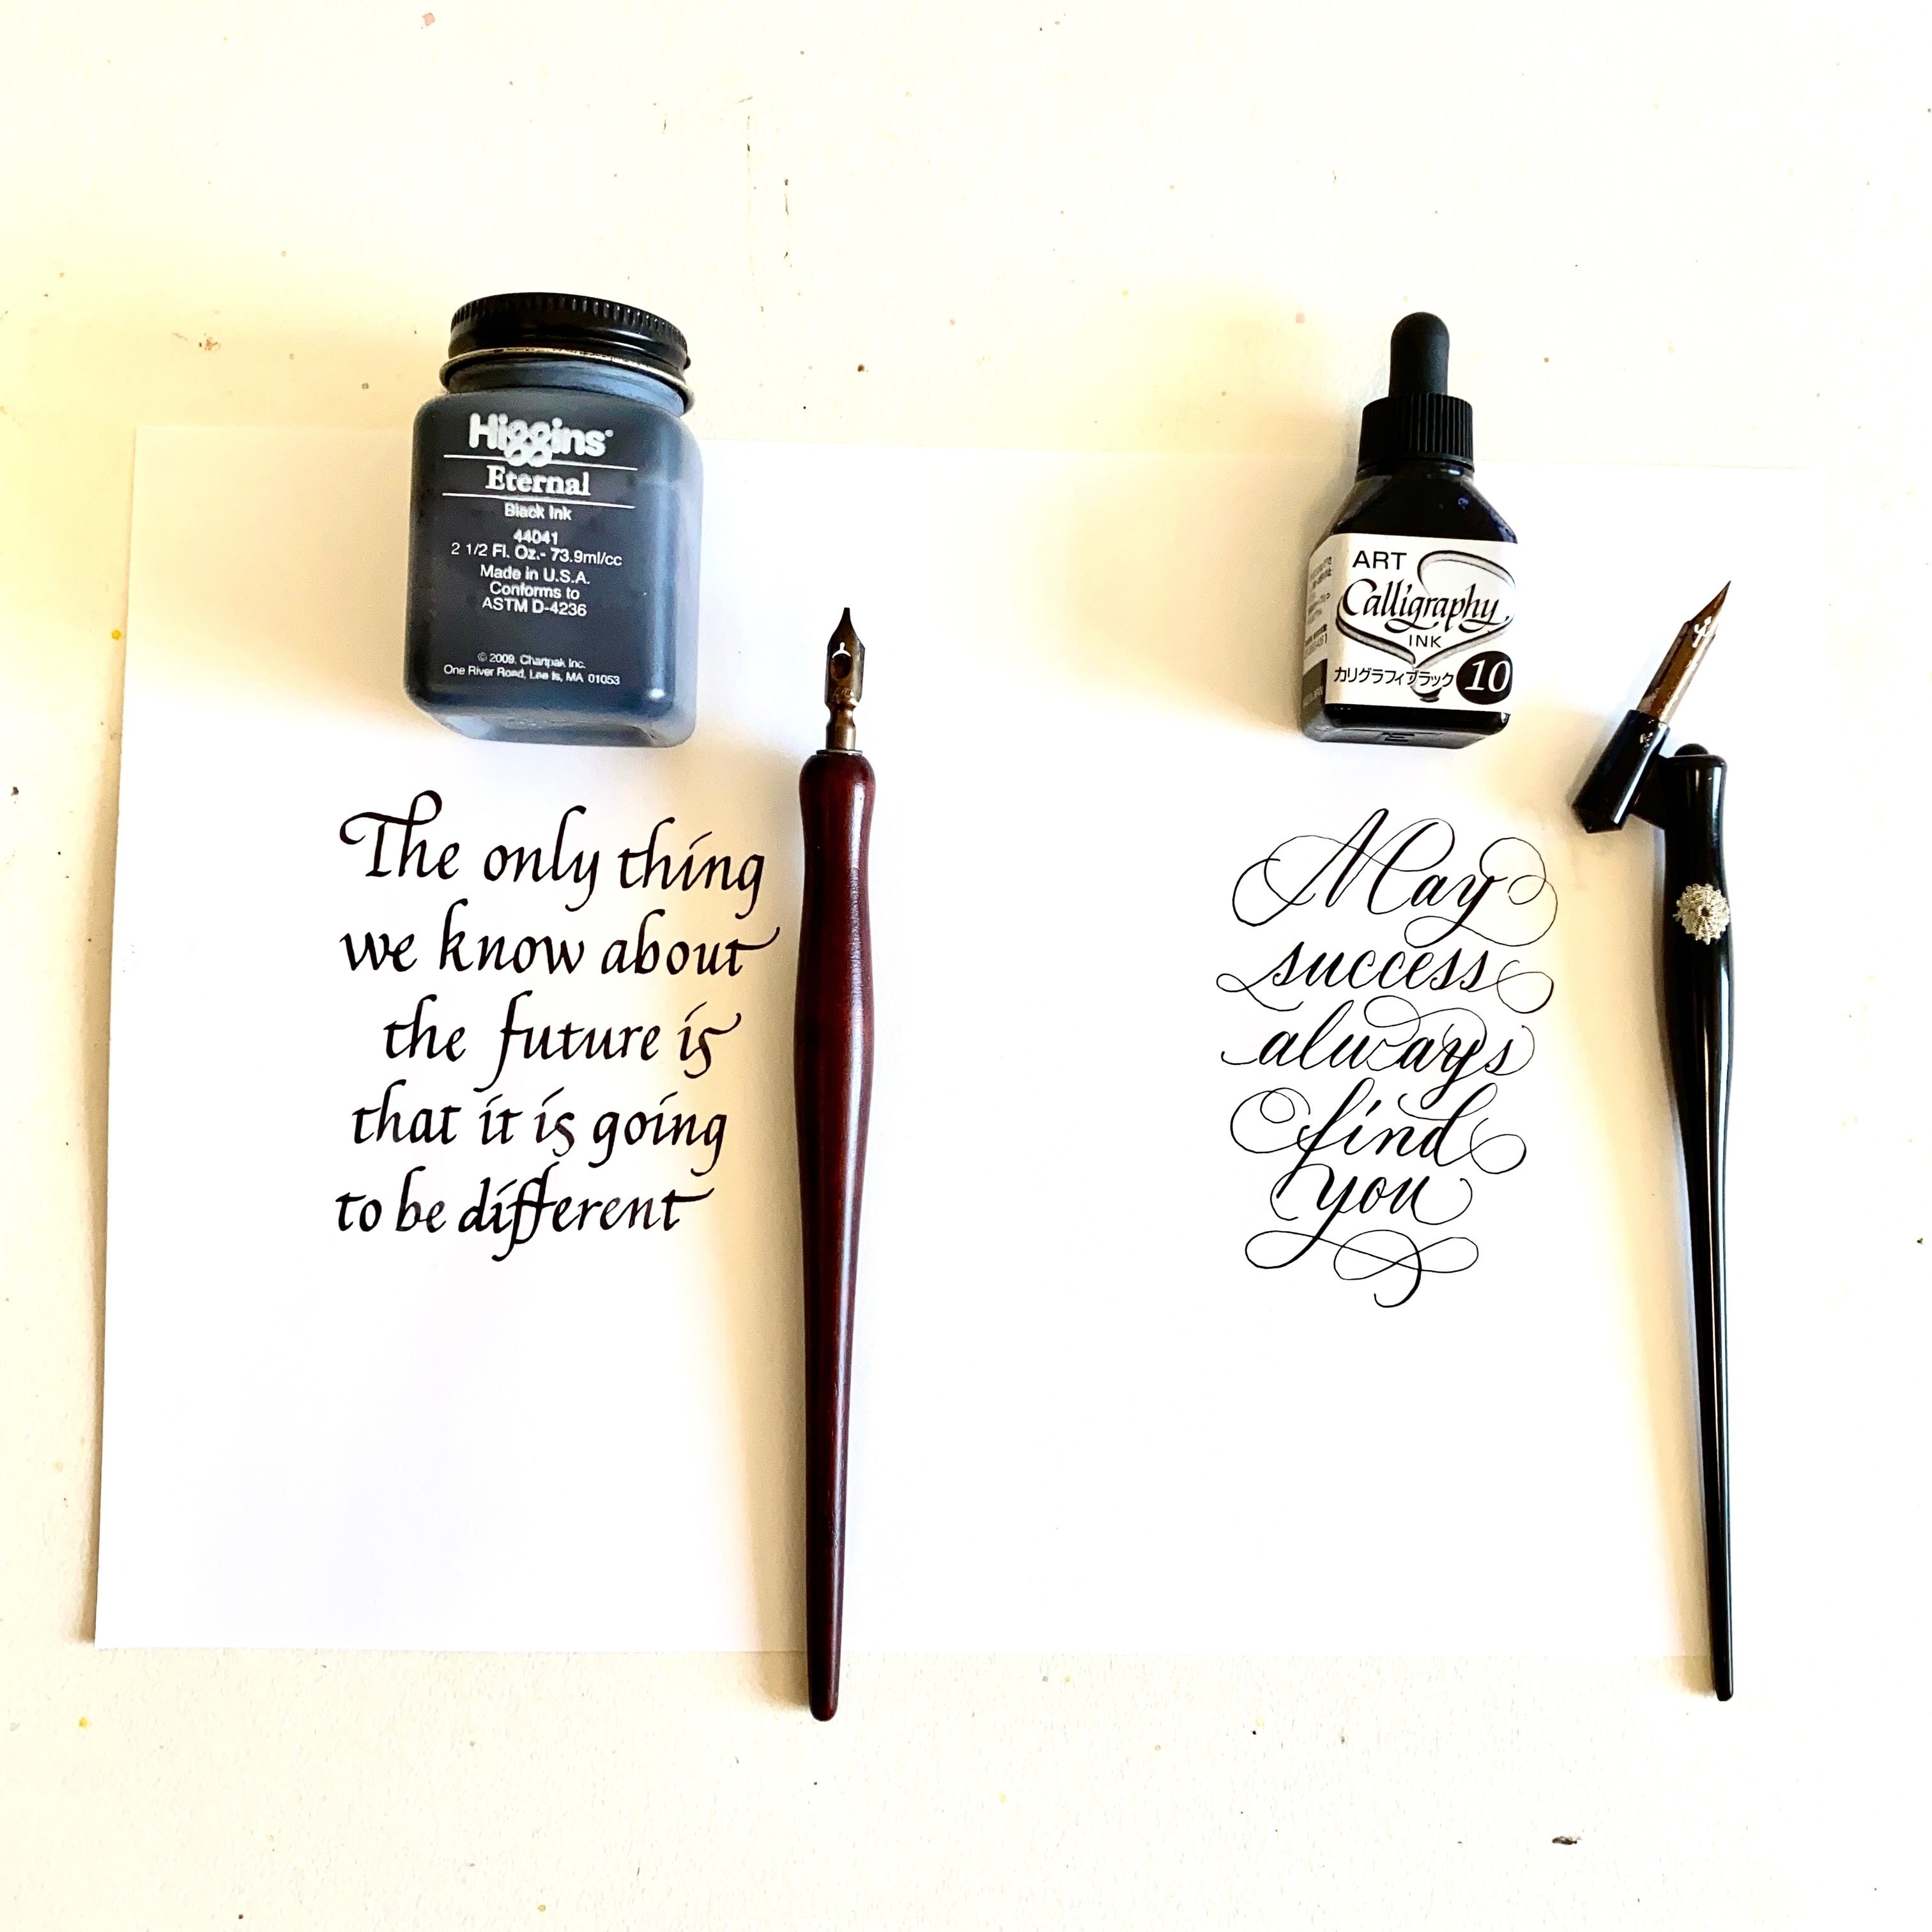 Higgins®
Eternal
Black Ink
44041
2 1/2 Fl. Oz.- 73.9ml/cc
Made in U.S.A.
Conforms to
ASTM D-4236
© 2009, Chartpak Inc.
One River Road, Lee ls, MA 01053
The only thing
we know about
the future is
that it is going
to be different
ART
Calligraphy
INK
カリグラフィブラック 10
May
success
always
find
you